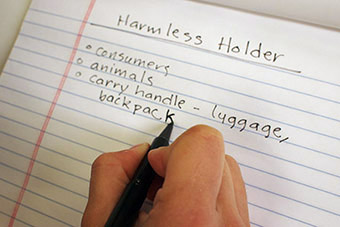 Harmless Holder
• consumers
• animals
• carry handle - luggage,
backpack